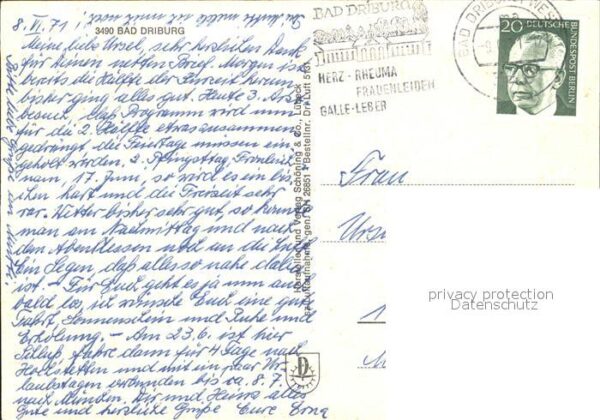 8. VI. 71
3490 BAD DRIBURG
Meine liebe Ursel, sehr herzlichen Dank
für Deinen netten Brief. Morgen ist
bereits die Hälfte der Kurzeit herum,
bisher ging alles gut. Heute 3. Arzt-
besuch, das Programm wird nun
für die 2. Hälfte etwas zusammen-
gedrängt, die Feiertage müssen ein-
geholt werden. 2. Pfingsttag, Fronleich-
nam, 17. Juni, so wird es ein biß-
chen hart und die Freizeit sehr
rar. Wetter bisher sehr gut, so kann
man am Nachmittag und nach
dem Abendessen noch an die Luft.
Ein Segen, daß alles so nahe dabei
ist. – Für Euch geht es ja nun auch
bald los, ich wünsche Euch eine gute
Fahrt, Sonnenschein und Ruhe und
Erholung. – Am 23.6. ist hier
Schluß, fahre dann für 4 Tage nach
und mit ein paar Ur-
laubstagen verbunden bis ca. 8. 7.
nach München. Dir und Heinz alles
Gute und herzliche Grüße Eure Erna
Hersteller und Verlag Schöning & Co., Lübeck
BAD DRIBURG
HERZ - RHEUMA
FRAUENLEIDEN
GALLE - LEBER
BAD DRIBURG
20
DEUTSCHE
BUNDESPOST BERLIN
Frau
privacy protection
Datenschutz
D